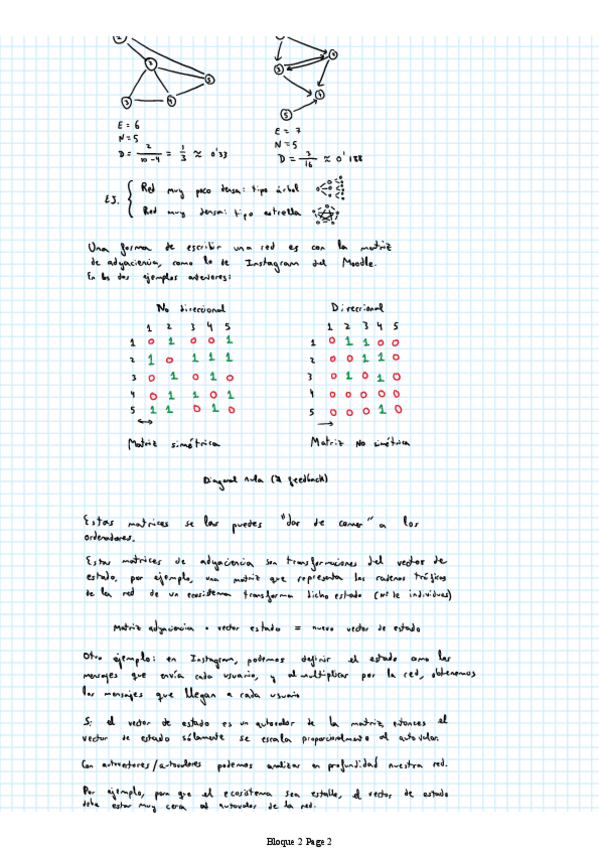 2
5
3
4
3
4
4
5
E = 6
N = 5
D = 2 / 10-4 = 1/3 ≈ 0'33
E = 7
N = 5
D = 3/16 ≈ 0'188
EJ. { Red muy poco densa: tipo árbol
Red muy densa: tipo estrella
Una forma de escribir una red es con la matriz
de adyaciencia, como la de Instagram del Moodle.
En los dos ejemplos anteriores:
No direccional
1 2 3 4 5
1 0 1 0 0 1
2 1 0 1 1 1
3 0 1 0 1 0
4 0 1 1 0 1
5 1 1 0 1 0
Matriz simétrica
Direccional
1 2 3 4 5
1 0 1 1 0 0
2 0 0 1 1 0
3 0 1 0 1 0
4 0 0 0 0 0
5 0 0 0 1 0
Matriz No simétrica
Diagonal nula (∄ feedback)
Estas matrices se las puedes "dar de comer" a los
ordenadores.
Estas matrices de adyaciencia son transformaciones del vector de
estado, por ejemplo, una matriz que representa las cadenas tróficas
de la red de un ecosistema transforma dicho estado (nº de individuos)
Matriz adyaciencia · vector estado = nuevo vector de estado
Otro ejemplo: en Instagram, podemos definir el estado como los
mensajes que envía cada usuario, y al multiplicar por la red, obtenemos
los mensajes que llegan a cada usuario
Si el vector de estado es un autovalor de la matriz, entonces el
vector de estado sólamente se escala proporcionalmente al autovalor.
Con autovectores/autovalores podemos analizar en profundidad nuestra red.
Por ejemplo, para que el ecosistema sea estable, el vector de estado
debe estar muy cerca al autovalor de la red.
Bloque 2 Page 2